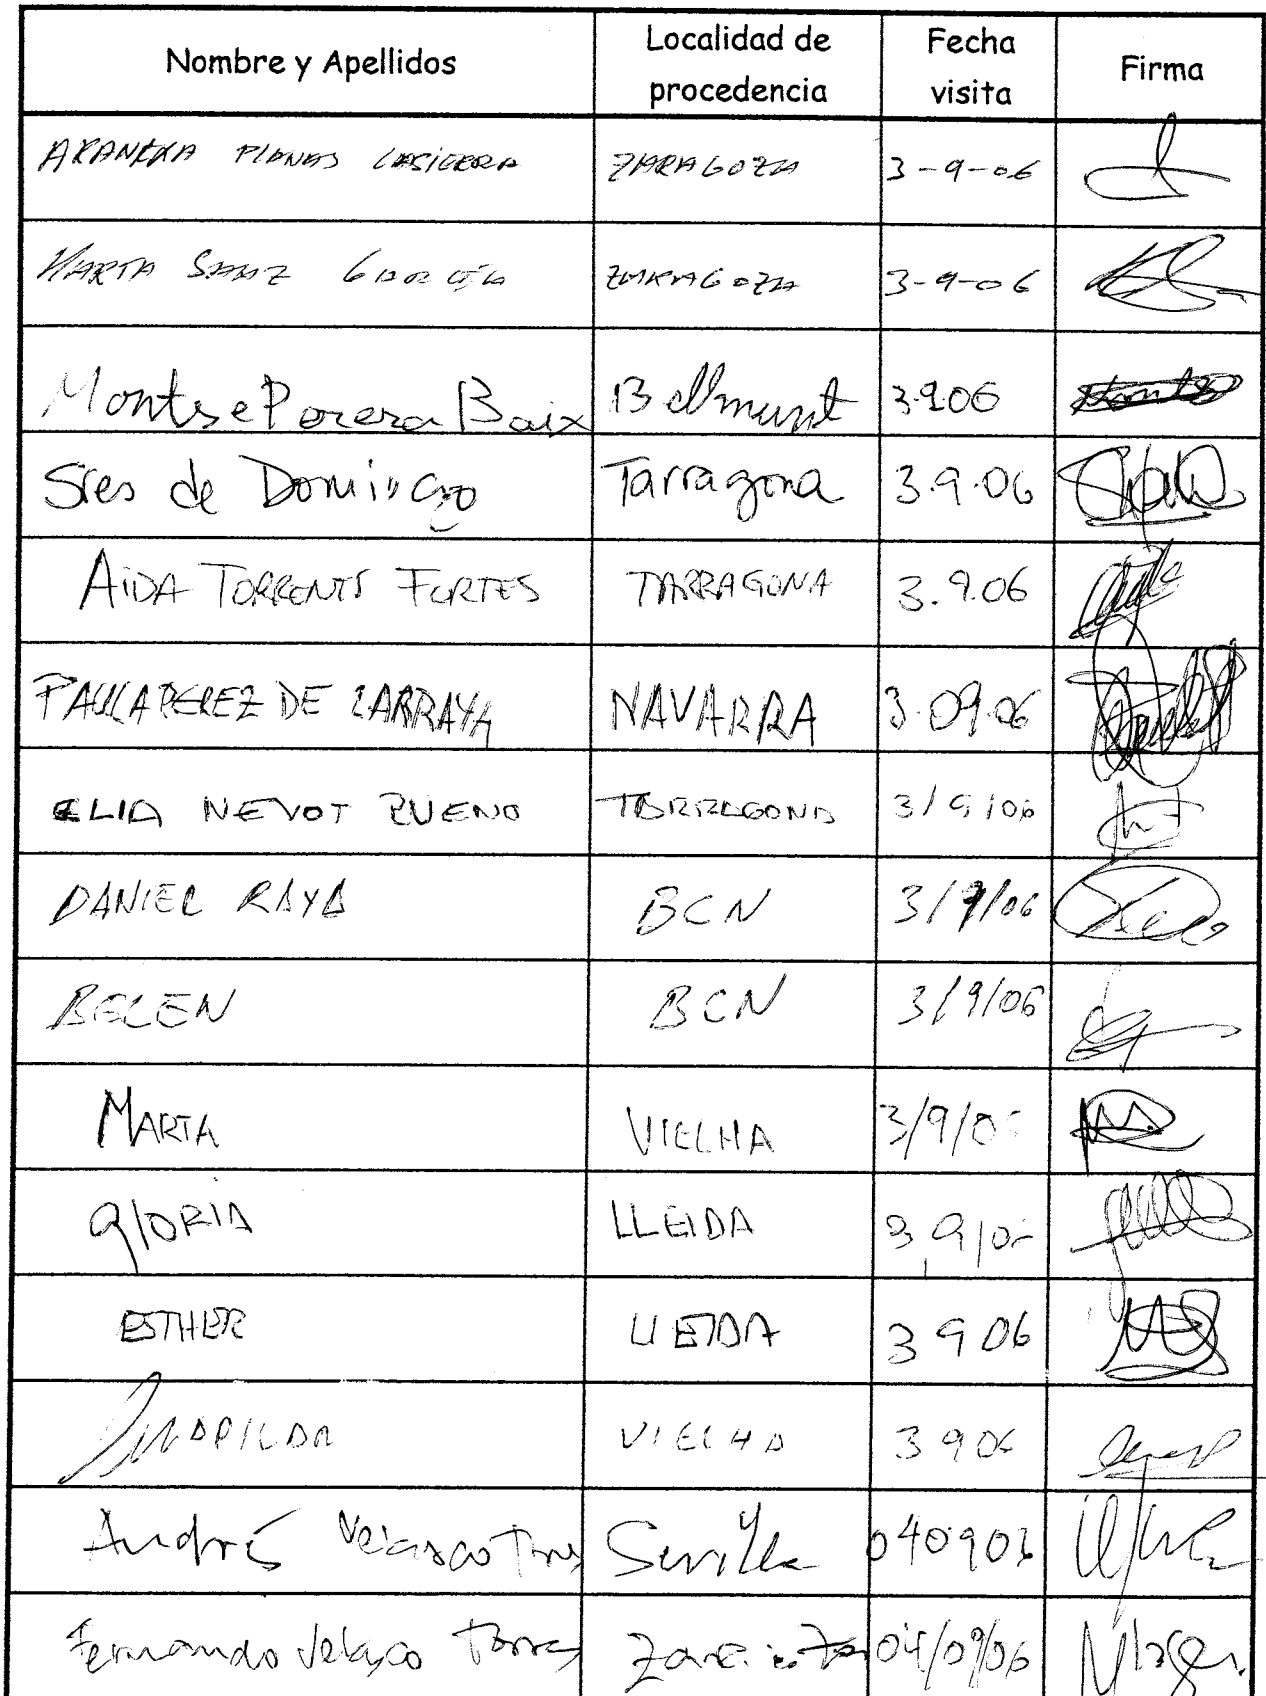 Nombre y Apellidos Localidad de procedencia Fecha visita Firma
PLANAS ZARAGOZA 3-9-06
MARTA SANZ GARCÍA ZARAGOZA 3-9-06
Montse Porera Baix Bellmunt 3.9.06
Sres de Domingo Tarragona 3.9.06
AIDA TORRENTS FORTES TARRAGONA 3.9.06
PAULA PEREZ DE ZARRAYA NAVARRA 3.09.06
ELIA NEVOT BUENO TARRAGONA 3/9/06
DANIEL RAYA BCN 3/9/06
BELEN BCN 3/9/06
MARTA VIELHA 3/9/0
glORIA LLEIDA 3 9/0
ESTHER LLEIDA 3 9 06
VIELHA 3 9 06
Andrés Velasco Torres Sevilla
Fernando Velasco Torres 04/09/06